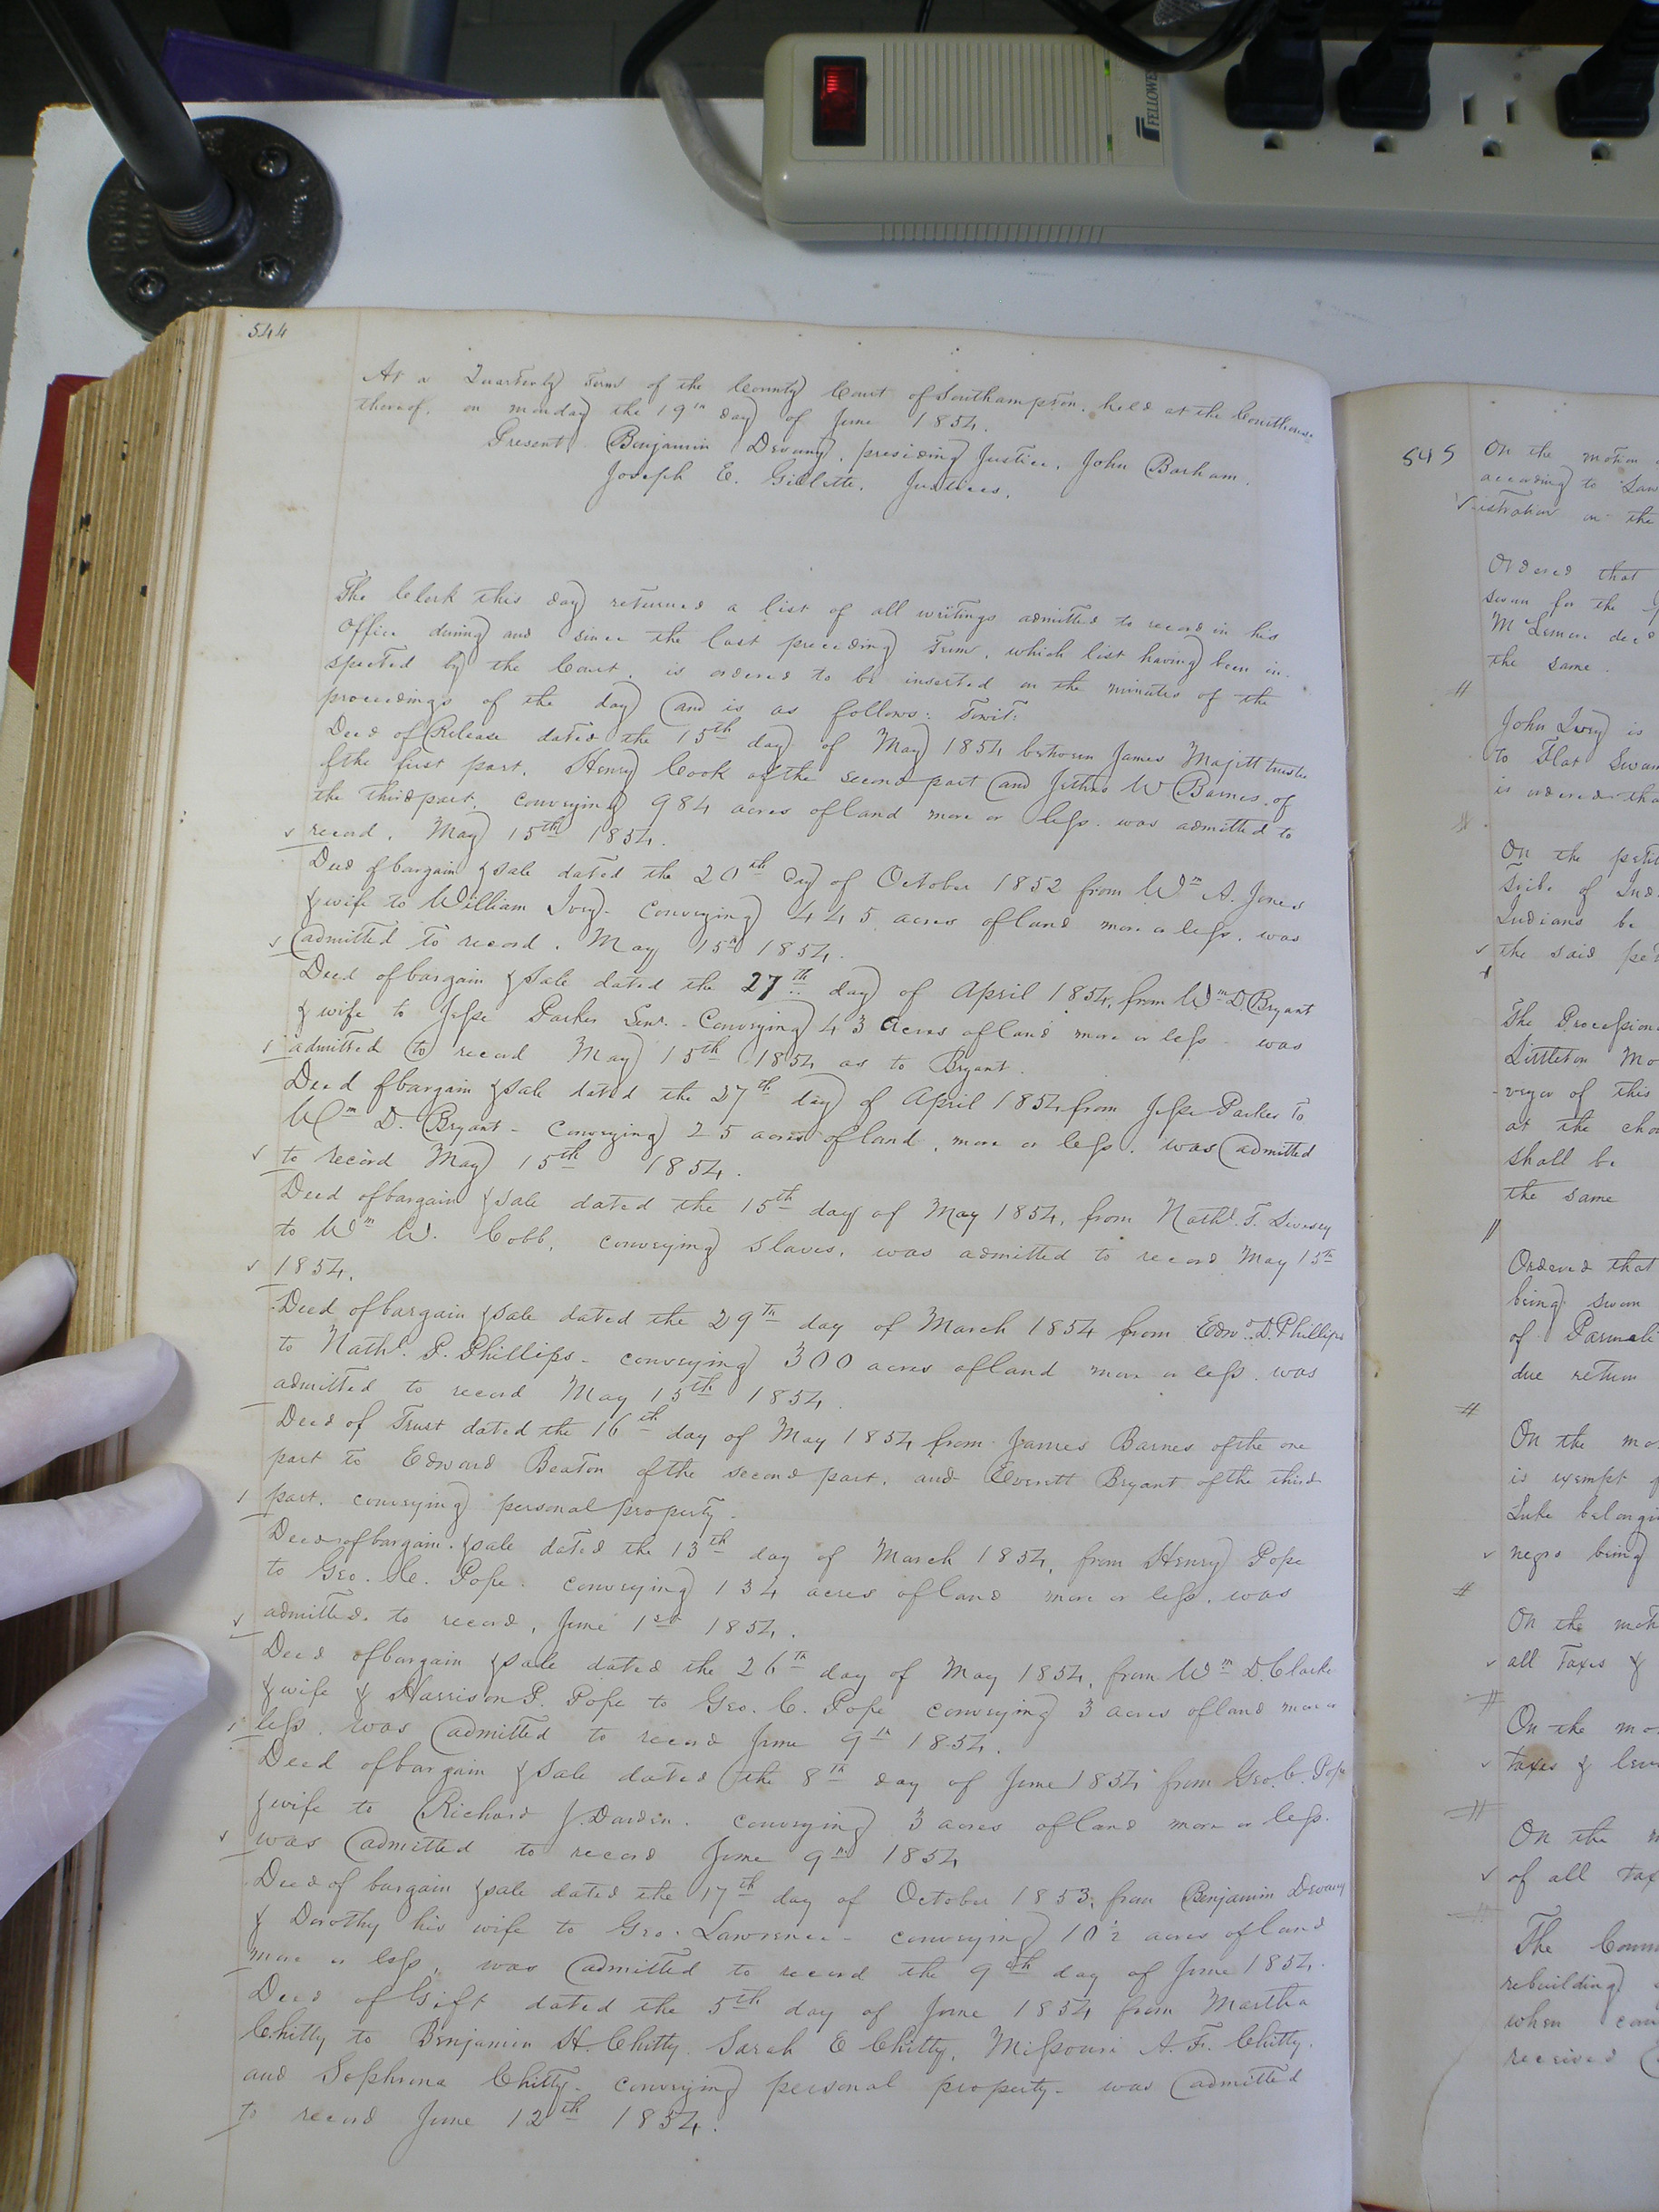 FELLOWE
544
At a Quarterly Term of the County Court of Southampton, held at the Courthouse
thereof, on monday the 19th day of June 1854.
Present, Benjamin Devany, presiding Justice, John Barham,
Joseph E. Gillette, Justices.
The Clerk this day returned a list of all writings admitted to record in his
Office during and since the last preceeding Term, which list having been in-
spected by the Court, is ordered to be inserted in the minutes of the
proceedings of the day and is as follows: Towit:
Deed of Release dated the 15th day of May 1854 between James Majitt trustee
of the first part, Henry Cook of the second part and Jethro W Barnes, of
the third part, conveying 984 acres of land more or less. was admitted to
record, May 15th 1854.
Deed of bargain & sale dated the 20th Day of October 1852 from Wm A. Jones
& wife to William Ivey- conveying 445 acres of land more or less, was
admitted to record, May 15th 1854.
Deed of bargain & sale dated the 27th day of April 1854, from Wm D. Bryant
& wife to Jesse Parker Senr. Conveying 43 acres of land more or less - was
admitted to record May 15th 1854 as to Bryant.
Deed of bargain & sale dated the 27th day of April 1854 from Jesse Parker To
Wm D. Bryant - Conveying 25 acres of land, more or less. was admitted
to record May 15th 1854.
Deed of bargain & sale dated the 15th day of May 1854, from Nathl. T.
to Wm W. Cobb, conveying slaves, was admitted to record May 15th
1854.
Deed of bargain & sale dated the 29th day of March 1854 from Edwd. D. Phillips
to Nathl. P. Phillips - conveying 300 acres of land more or less. was
admitted to record May 15th 1854.
Deed of Trust dated the 16th day of May 1854 from James Barnes of the one
part to Edward Beaton of the second part, and Everett Bryant of the third
part. conveying personal property.
Deed of bargain & sale dated the 13th day of March 1854, from Henry Pope
to Geo. C. Pope. conveying 134 acres of land more or less, was
admitted to record, June 1st 1854.
Deed of bargain & sale dated the 26th day of May 1854, from Wm D. Clarke
& wife & Harrison P. Pope to Geo. C. Pope conveying 3 acres of land more or
less. was admitted to record June 9th 1854.
Deed of bargain & sale dated the 8th day of June 1854 from Geo. C. Pope
& wife to Richard J. Darden. conveying 3 acres of land more or less.
was admitted to record June 9th 1854
Deed of bargain & sale dated the 17th day of October 1853, from Benjamin Devany
& Dorothy his wife to Geo. Lawrence - conveying 10½ acres of land
more or less, was admitted to record the 9th day of June 1854.
Deed of Gift dated the 5th day of June 1854 from Martha
Chitty to Benjamin H. Chitty. Sarah E Chitty, Missouri A. F. Chitty.
and Sophrona Chitty- conveying personal property- was admitted
to record June 12th 1854.
545
On the motion
according to Law
istration on the
Ordered that
sworn for the
McLemore decd
the same.
John Ivey is
to Flat Swam
is ordered tha
On the petit
tribe of Ind
Indians be
the said pet
The Procession
Littleton Mo
veyor of this
at the cho
shall be
the same
Ordered that
being sworn
of
due return
On the mo
is exempt
Luke belongi
negro being
On the moti
all Taxes &
On the mo
taxes & lev
On the m
of all tax
The Comm
rebuilding
when
received